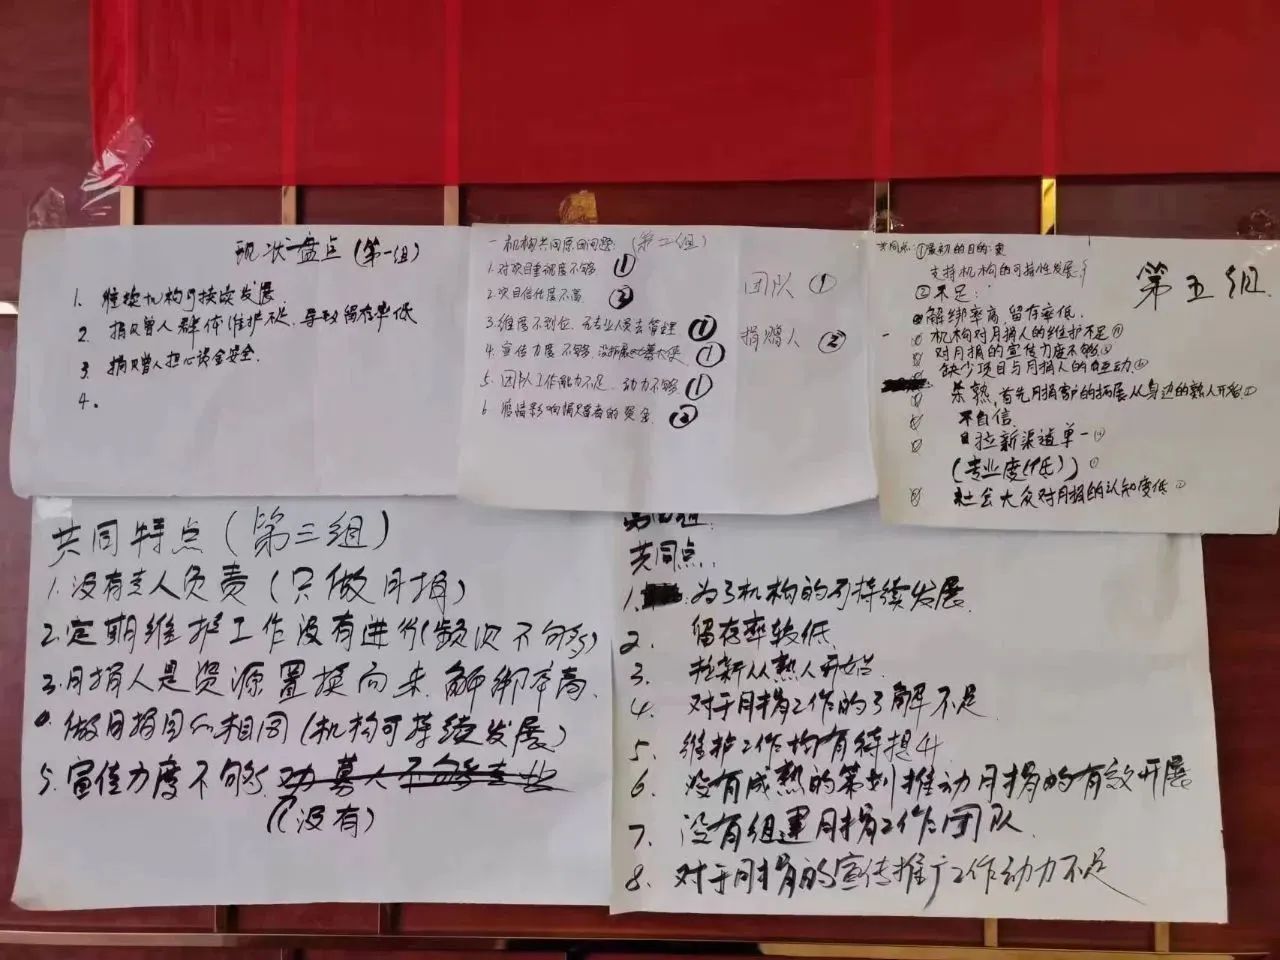 现状盘点(第一组)
1. 继续机构可持续发展
2. 捐赠人群体维护不足,导致留存率低
3. 捐赠人担心资金安全.
4.
一机构共同原因问题:(第二组)
1.对项目重视度不够 ①
2.项目信任度不高 ②
3.维度不到位,无专业人员去管理 ①
4.宣传力度不够,没拓展爱心大使 ①
5.团队工作能力不足,动力不够 ①
6 疫情影响捐赠者的资金 ②
团队 ①
捐赠人 ②
第五组
共同点:①最初的目的:
支持机构的可持性发展
②不足:
解绑率高,留存率低.
机构对月捐人的维护不足
对月捐的宣传力度不够
缺少项目与月捐人的互动
杀熟,首先月捐客户的拓展从身边的熟人开始
不自信
拉新渠道单一
(专业度低)
社会大众对月捐的认知度低
共同特点(第三组)
1.没有专人负责(只做月捐)
2.定期维护工作没有进行(频次不够)
3.月捐人是资源置换而来.解绑率高.
做月捐目的相同(机构可持续发展)
5.宣传力度不够, 劝募人不够专业
(没有)
第四组:
共同点:
1. 为了机构的可持续发展.
2. 留存率较低.
3. 拉新从熟人开始
4. 对于月捐工作的了解不足
5. 维护工作均有待提升
6. 没有成熟的策划推动月捐的有效开展
7. 没有组建月捐工作团队.
8. 对于月捐的宣传推广工作动力不足